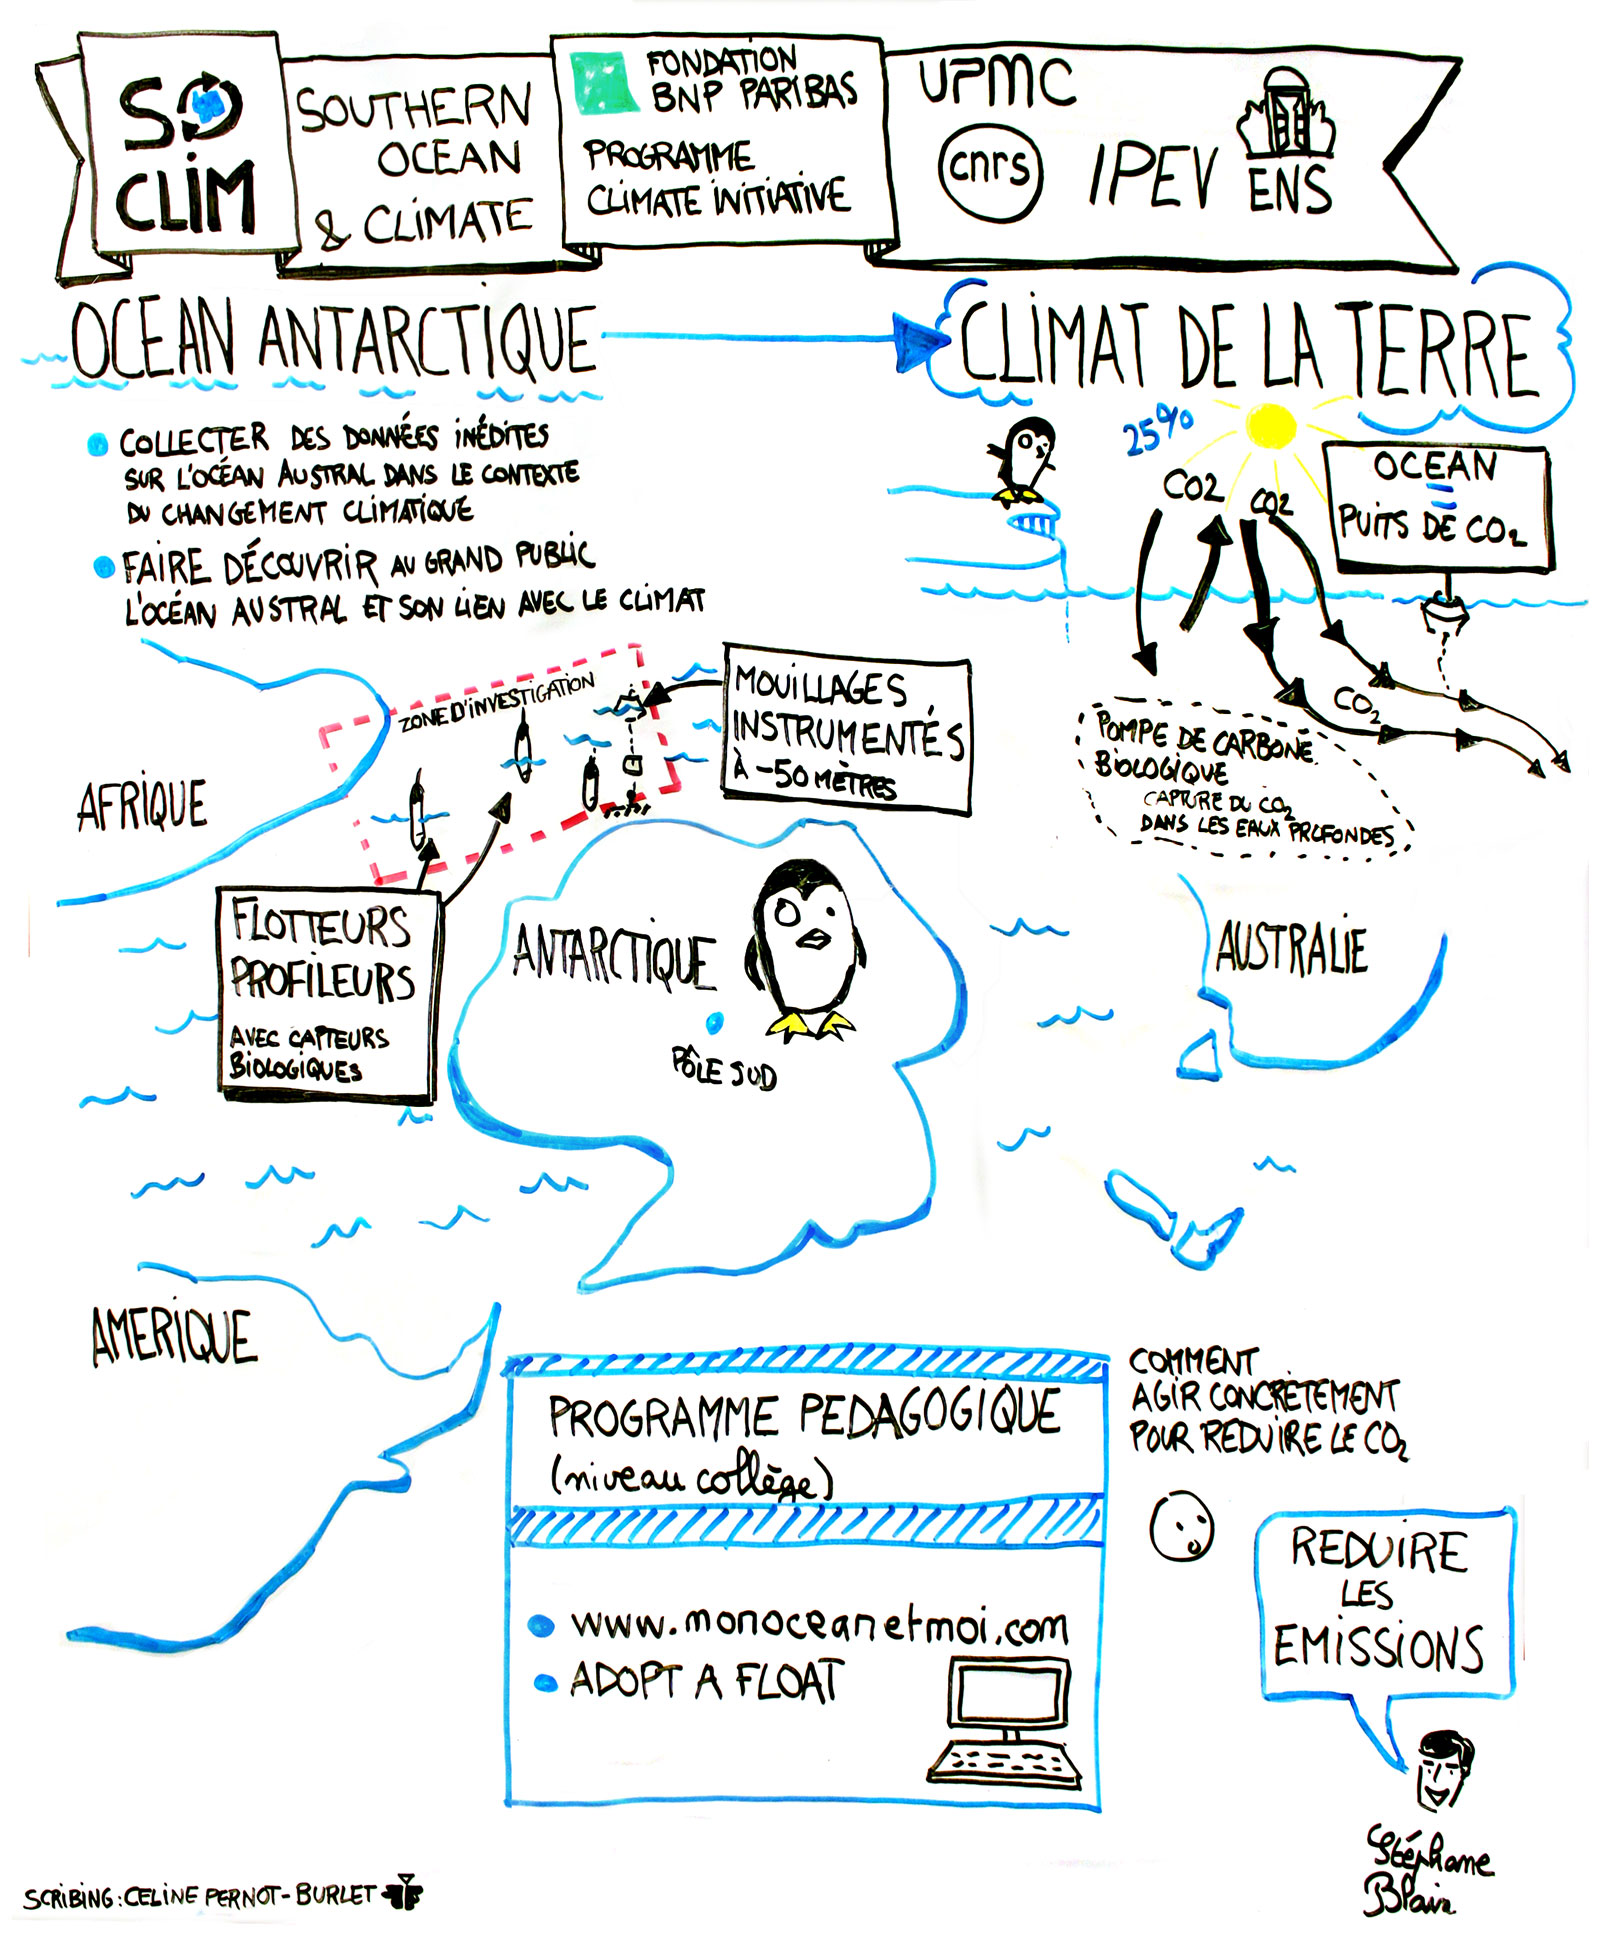 SO
CLIM
SOUTHERN
OCEAN
& CLIMATE
FONDATION
BNP PARIBAS
PROGRAMME
CLIMATE INITIATIVE
UPMC
cnrs
IPEV
ENS
OCEAN ANTARCTIQUE
CLIMAT DE LA TERRE
COLLECTER DES DONNÉES INÉDITES
SUR L'OCÉAN AUSTRAL DANS LE CONTEXTE
DU CHANGEMENT CLIMATIQUE
FAIRE DÉCOUVRIR AU GRAND PUBLIC
L'OCÉAN AUSTRAL ET SON LIEN AVEC LE CLIMAT
25%
CO2
CO2
OCEAN
=
PUITS DE CO2
CO2
POMPE DE CARBONE
BIOLOGIQUE
CAPTURE DU CO2
DANS LES EAUX PROFONDES
ZONE D'INVESTIGATION
MOUILLAGES
INSTRUMENTÉS
À -50 MÈTRES
AFRIQUE
FLOTTEURS
PROFILEURS
AVEC CAPTEURS
BIOLOGIQUES
ANTARCTIQUE
PÔLE SUD
AUSTRALIE
AMERIQUE
PROGRAMME PEDAGOGIQUE
(niveau collège)
www.monoceanetmoi.com
ADOPT A FLOAT
COMMENT
AGIR CONCRÈTEMENT
POUR REDUIRE LE CO2
REDUIRE
LES
EMISSIONS
Stéphane
Blain
SCRIBING: CELINE PERNOT-BURLET